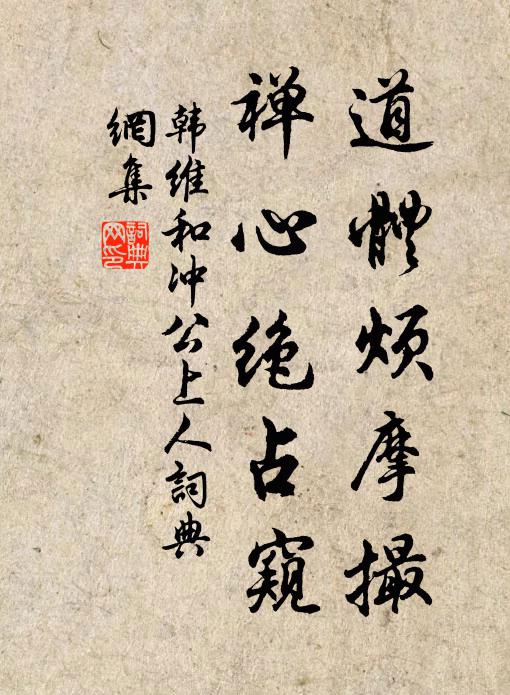 道體煩摩撮
禅心绝占窥
韩维和冲公上人詞典
網集
詞典网印